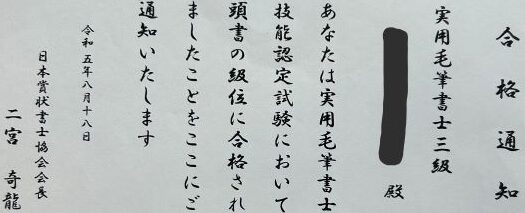 合格通知
実用毛筆書士三級
殿
あなたは実用毛筆書士
技能認定試験において
頭書の級位に合格され
ましたことをここにご
通知いたします
令和五年八月十八日
日本賞状書士協会会長
二宮奇龍